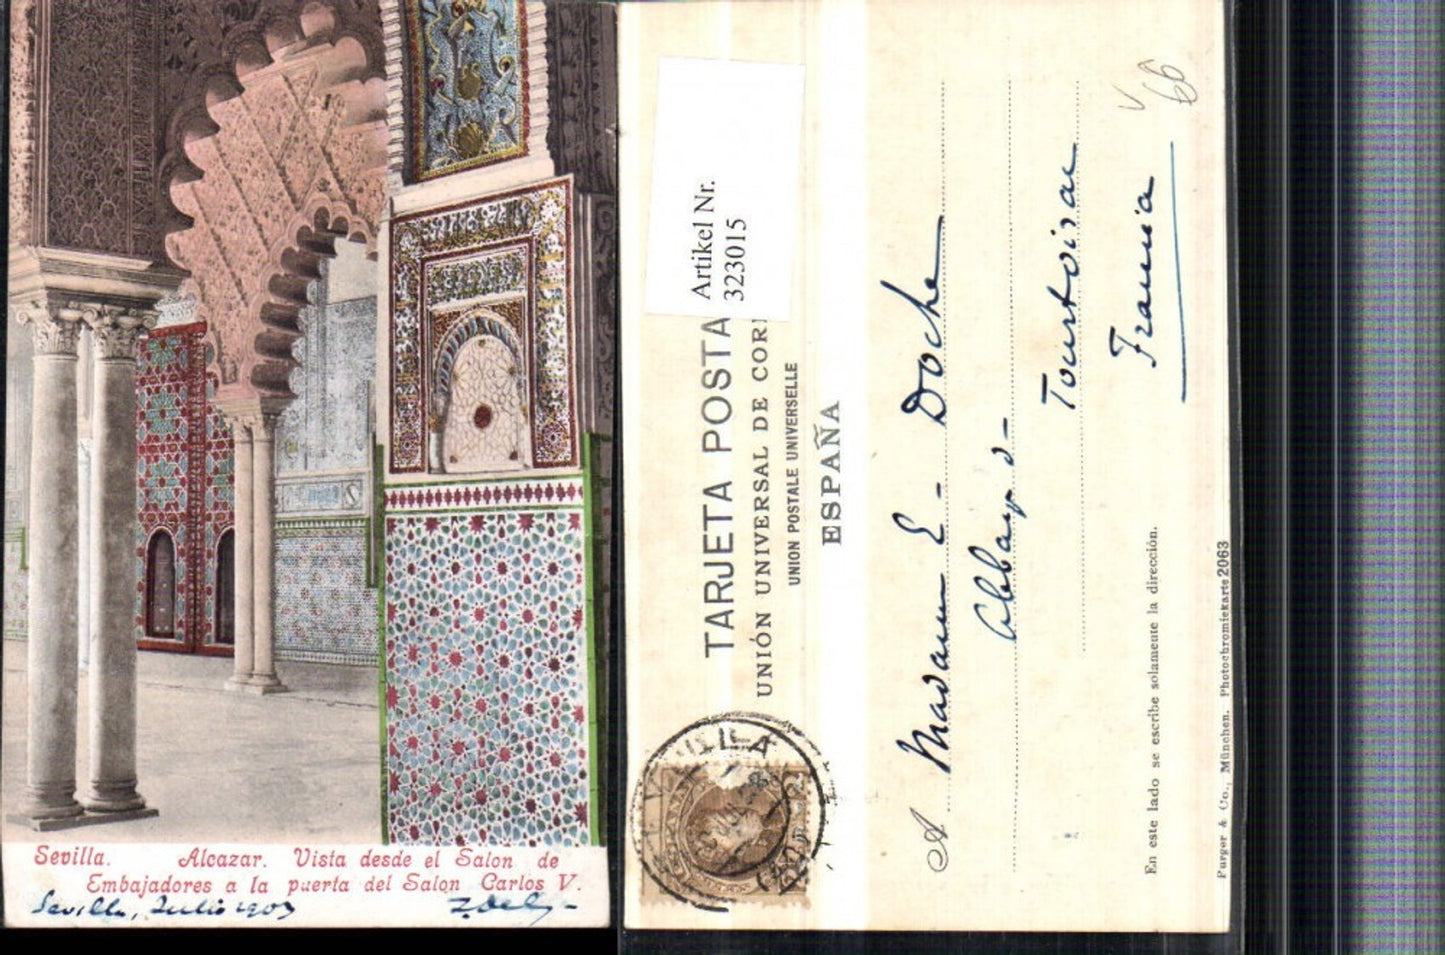 Sevilla. Alcazar. Vista desde el Salon de
Embajadores a la puerta del Salon Carlos V.
Sevilla, Julio 1903
Artikel Nr.
323015
TARJETA POSTA
UNIÓN UNIVERSAL DE COR
UNION POSTALE UNIVERSELLE
ESPAÑA
A Madame E - Doche
Tourtoirac
Francia
66
En este lado se escribe solamente la dirección.
Purger & Co., München. Photochromiekarte 2063